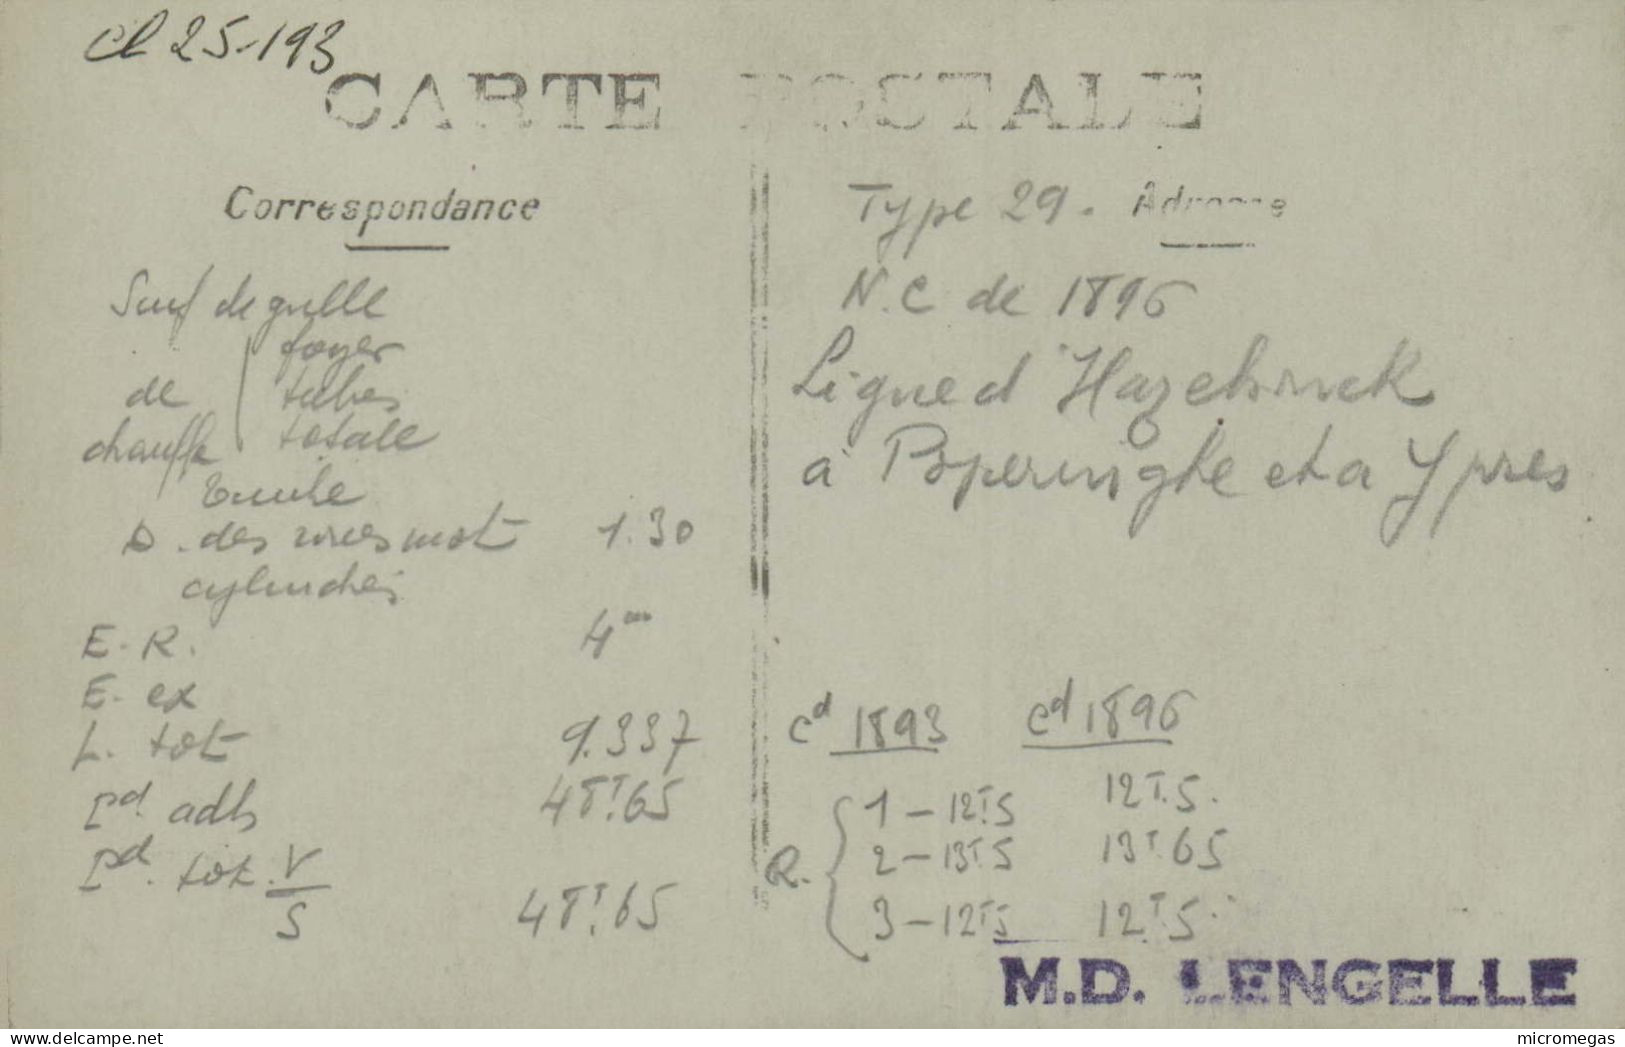 cl 25-193
CARTE POSTALE
Correspondance
Adresse
Surf de grille
de chauffe
foyer
tubes
totale
Timbre
D. des roues mot 1.30
cylindres
E.R. 4m
E. ex
L. tot 9.337
Pd. adh 48T.65
Pd. tot. V/S 48T.65
Type 29.
N.C de 1896
Ligne d'Hazebruck
a Poperinghe et a Ypres
cd 1893 cd 1896
R.
1 - 12T5 12T.5.
2 - 13T.5 13T.65
3 - 12T5 12T.5.
M.D. LENGELLE
delcampe.net
micromegas